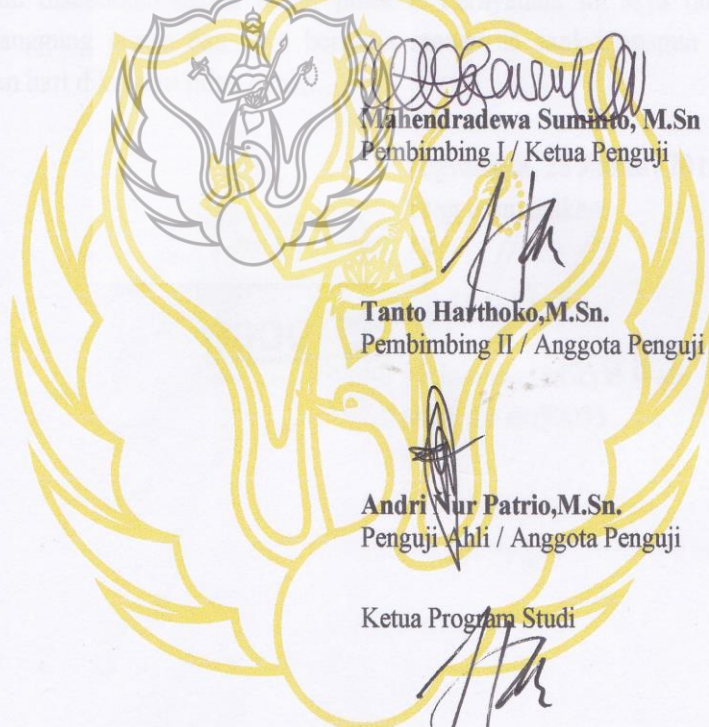 Mahendradewa Suminto, M.Sn
Pembimbing I / Ketua Penguji
Tanto Harthoko,M.Sn.
Pembimbing II / Anggota Penguji
Andri Nur Patrio,M.Sn.
Penguji Ahli / Anggota Penguji
Ketua Program Studi